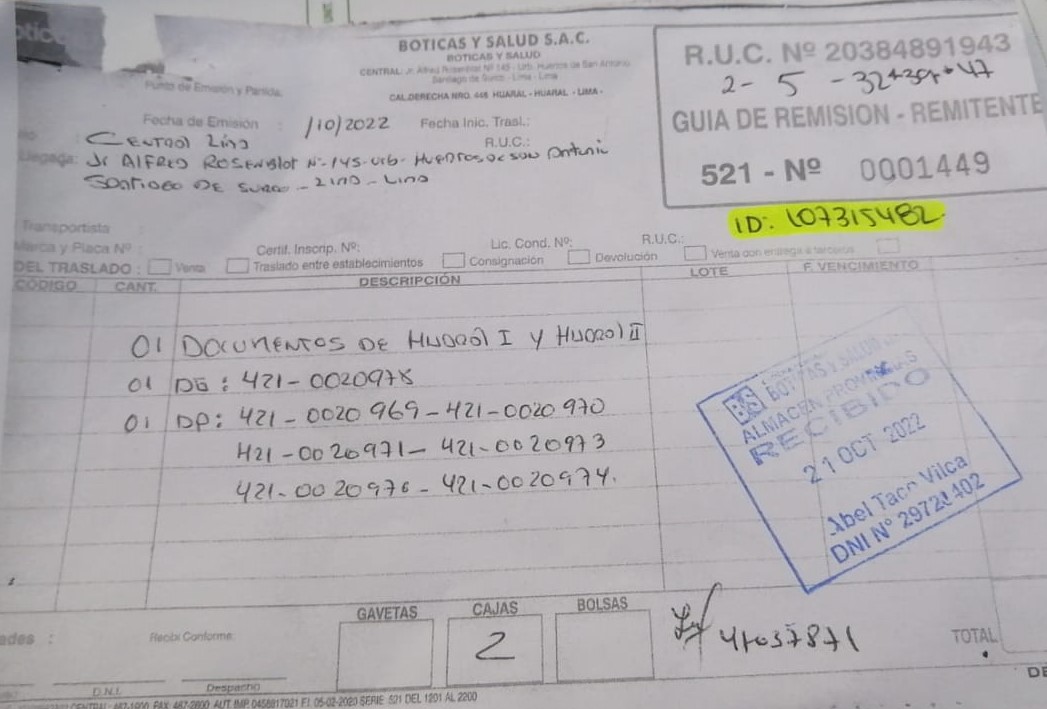 BOTICAS Y SALUD S.A.C.
BOTICAS Y SALUD
CENTRAL: Jr. Alfred Rosenblot Nº 145 - Urb. Huertos de San Antonio
Santiago de Surco - Lima - Lima
CAL.DERECHA NRO. 448 HUARAL - HUARAL - LIMA -
R.U.C. Nº 20384891943
2- 5 -
GUIA DE REMISION - REMITENTE
521 - Nº 0001449
ID: 107315482
Punto de Emisión y Partida:
Fecha de Emisión : /10/2022 Fecha Inic. Trasl.:
Central Lima R.U.C.:
Llegada: Jr ALFRED ROSENBLOT Nº 145-Urb-HUERTOS DE SAN Antonio
SANTIAGO DE SURCO - LIMA - LIMA
Transportista
Marca y Placa Nº : Certif. Inscrip. Nº: Lic. Cond. Nº: R.U.C.:
DEL TRASLADO : Venta Traslado entre establecimientos Consignación Devolución Venta con entrega a terceros
CÓDIGO CANT. DESCRIPCIÓN LOTE F. VENCIMIENTO
01 DOCUMENTOS DE HUARAL I Y HUARAL II
01 DG: 421-0020978
01 DP: 421-0020969-421-0020970
421-0020971-421-0020973
421-0020976-421-0020974.
BS BOTICAS Y SALUD
ALMACEN PROVINCIAS
RECIBIDO
21 OCT 2022
Abel Taco Vilca
DNI N° 29721402
GAVETAS CAJAS BOLSAS
2
41037871
Recibí Conforme: TOTAL
D.N.I. Despacho
FAX: 467-2800 AUT. IMP. 0458817021 F.I. 05-02-2020 SERIE: 521 DEL 1201 AL 2200